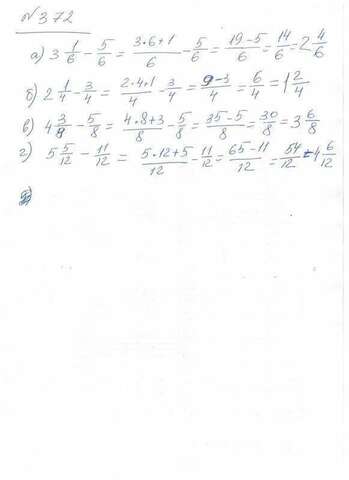 №372
а) 3 1/6 - 5/6 = 3·6+1/6 - 5/6 = 19-5/6 = 14/6 = 2 4/6
б) 2 1/4 - 3/4 = 2·4+1/4 - 3/4 = 9-3/4 = 6/4 = 1 2/4
в) 4 3/8 - 5/8 = 4·8+3/8 - 5/8 = 35-5/8 = 30/8 = 3 6/8
г) 5 5/12 - 11/12 = 5·12+5/12 - 11/12 = 65-11/12 = 54/12 = 4 6/12